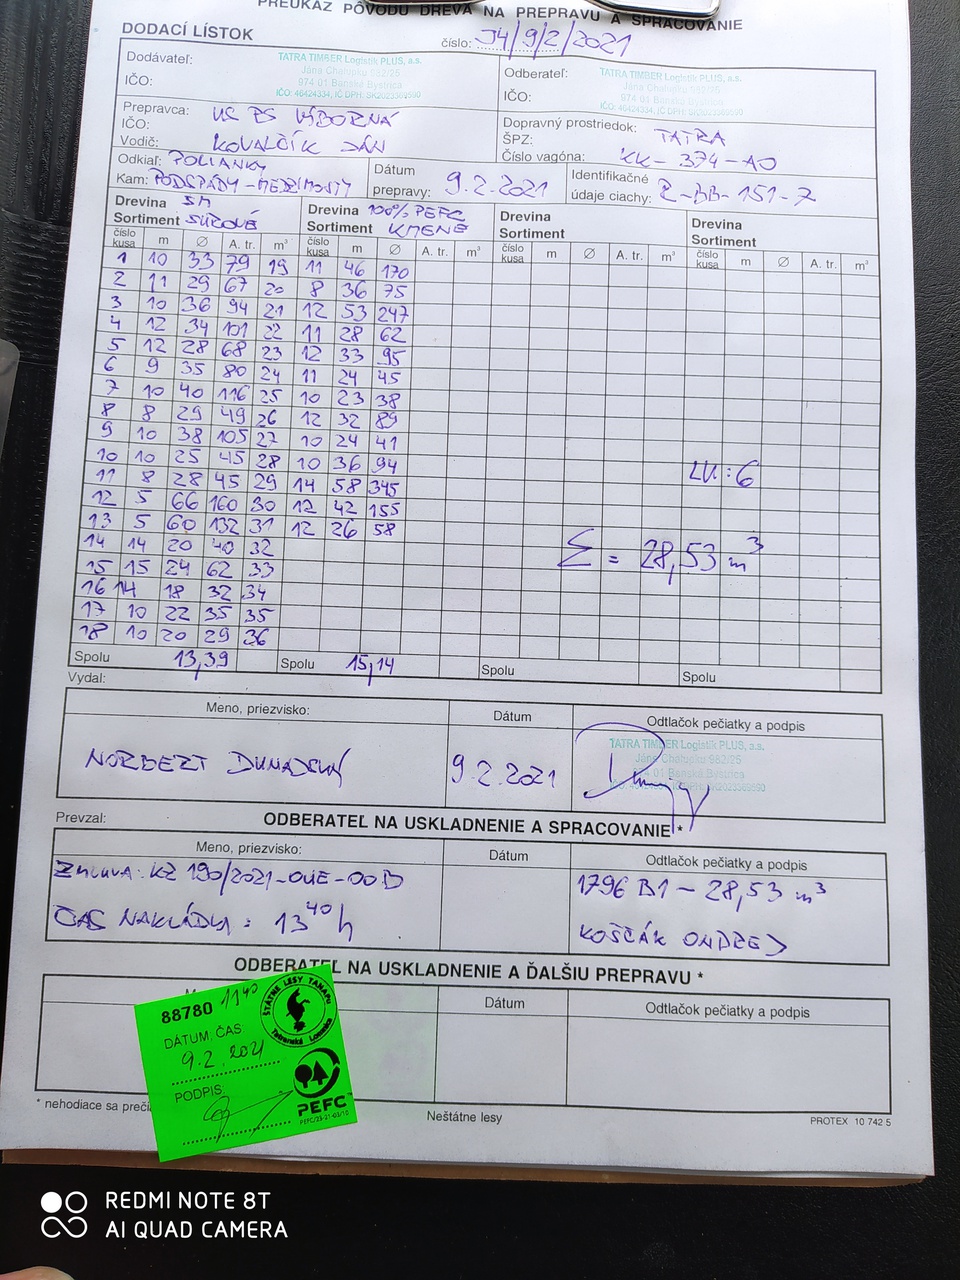 PREUKAZ PÔVODU DREVA NA PREPRAVU A SPRACOVANIE
DODACÍ LÍSTOK číslo: J4/9/2/2021
Dodávateľ: TATRA TIMBER Logistik PLUS, a.s.
Jána Chalupku 982/25
974 01 Banská Bystrica
IČO: IČO: 46424334, IČ DPH: SK2023369590
Odberateľ: TATRA TIMBER Logistik PLUS, a.s.
Jána Chalupku 982/25
974 01 Banská Bystrica
IČO:
Prepravca: VÝBORNÁ
IČO:
Vodič: KOVALČÍK JÁN
Dopravný prostriedok: TATRA
ŠPZ:
Číslo vagóna: KK-374-AO
Odkiaľ: POLIANKY
Kam: PODSPÁDY-MEDZIMOSTY
Dátum prepravy: 9.2.2021
Identifikačné údaje ciachy: Z-BB-151-7
Drevina SM Drevina 100% PEFC Drevina Drevina
Sortiment SUROVÉ Sortiment KMENE Sortiment Sortiment
číslo kusa m Ø A. tr. m³ číslo kusa m Ø A. tr. m³ číslo kusa m Ø A. tr. m³ číslo kusa m Ø A. tr. m³
1 10 33 79 19 11 46 170
2 11 29 67 20 8 36 75
3 10 36 94 21 12 53 247
4 12 34 101 22 11 28 62
5 12 28 68 23 12 33 95
6 9 35 80 24 11 24 45
7 10 40 116 25 10 23 38
8 8 29 49 26 12 32 89
9 10 38 105 27 10 24 41
10 10 25 45 28 10 36 94
11 8 28 45 29 14 58 345
12 5 66 160 30 12 42 155
13 5 60 132 31 12 26 58
14 14 20 40 32
15 15 24 62 33
16 14 18 32 34
17 10 22 35 35
18 10 20 29 36
LV: 6
Σ = 28,53 m³
Spolu 13,39 Spolu 15,14 Spolu Spolu
Vydal:
Meno, priezvisko: Dátum Odtlačok pečiatky a podpis
NORBERT 9.2.2021
TATRA TIMBER Logistik PLUS, a.s.
Jána Chalupku 982/25
974 01 Banská Bystrica
Prevzal: ODBERATEĽ NA USKLADNENIE A SPRACOVANIE *
Meno, priezvisko: Dátum Odtlačok pečiatky a podpis
ZMLUVA: KZ 190/2021-OUE-OOD
1796 B1 - 28,53 m³
ČAS NAKLÁDKY: 13⁴⁰ h
KOŠČÁK ONDREJ
ODBERATEĽ NA USKLADNENIE A ĎALŠIU PREPRAVU *
Dátum Odtlačok pečiatky a podpis
88780 1140
ŠTÁTNE LESY TANAPU
Tatranská Lomnica
DÁTUM, ČAS
9.2.2021
PODPIS:
PEFC
PEFC/23-21-03/10
* nehodiace sa
Neštátne lesy
PROTEX 10 742 5
REDMI NOTE 8T
AI QUAD CAMERA